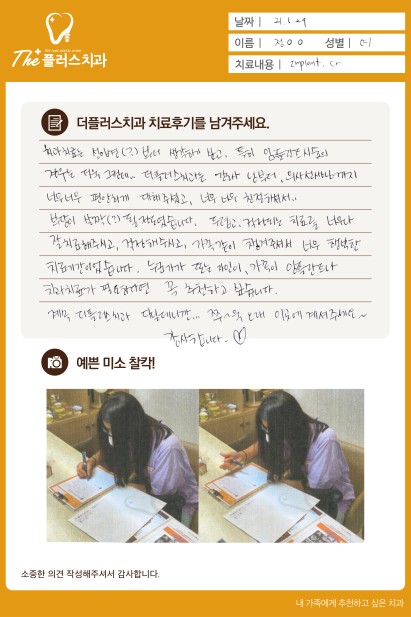 The 플러스치과
날짜 | 21. 1. 29
이름 | 정OO 성별 | 여
치료내용 | Implant. Cr
더플러스치과 치료후기를 남겨주세요.
치과치료는 선입견(?)부터 생각하게 되고. 특히 임플란트시술의
경우는 더욱 그런데.. 더플러스치과는 부터, 의사선생님까지
너무너무 편안하게 대해주셨고, 너무 너무 친절하셔서..
부담이 필요없었습니다. 치료를 너무나
잘 치료해주시고, 걱정해주시고, 가족같이 챙겨주셔서 너무 행복한
치료기간이었습니다. 누군가가 또는 지인이, 가족이 임플란트나
치과치료가 필요하다면 꼭 추천하고 싶습니다.
계속 더플러스치과 다닐테니깐... 쭉~욱 오래 이곳에 계셔주세요~
감사합니다. ♡
예쁜 미소 찰칵!
소중한 의견 작성해주셔서 감사합니다.
내 가족에게 추천하고 싶은 치과